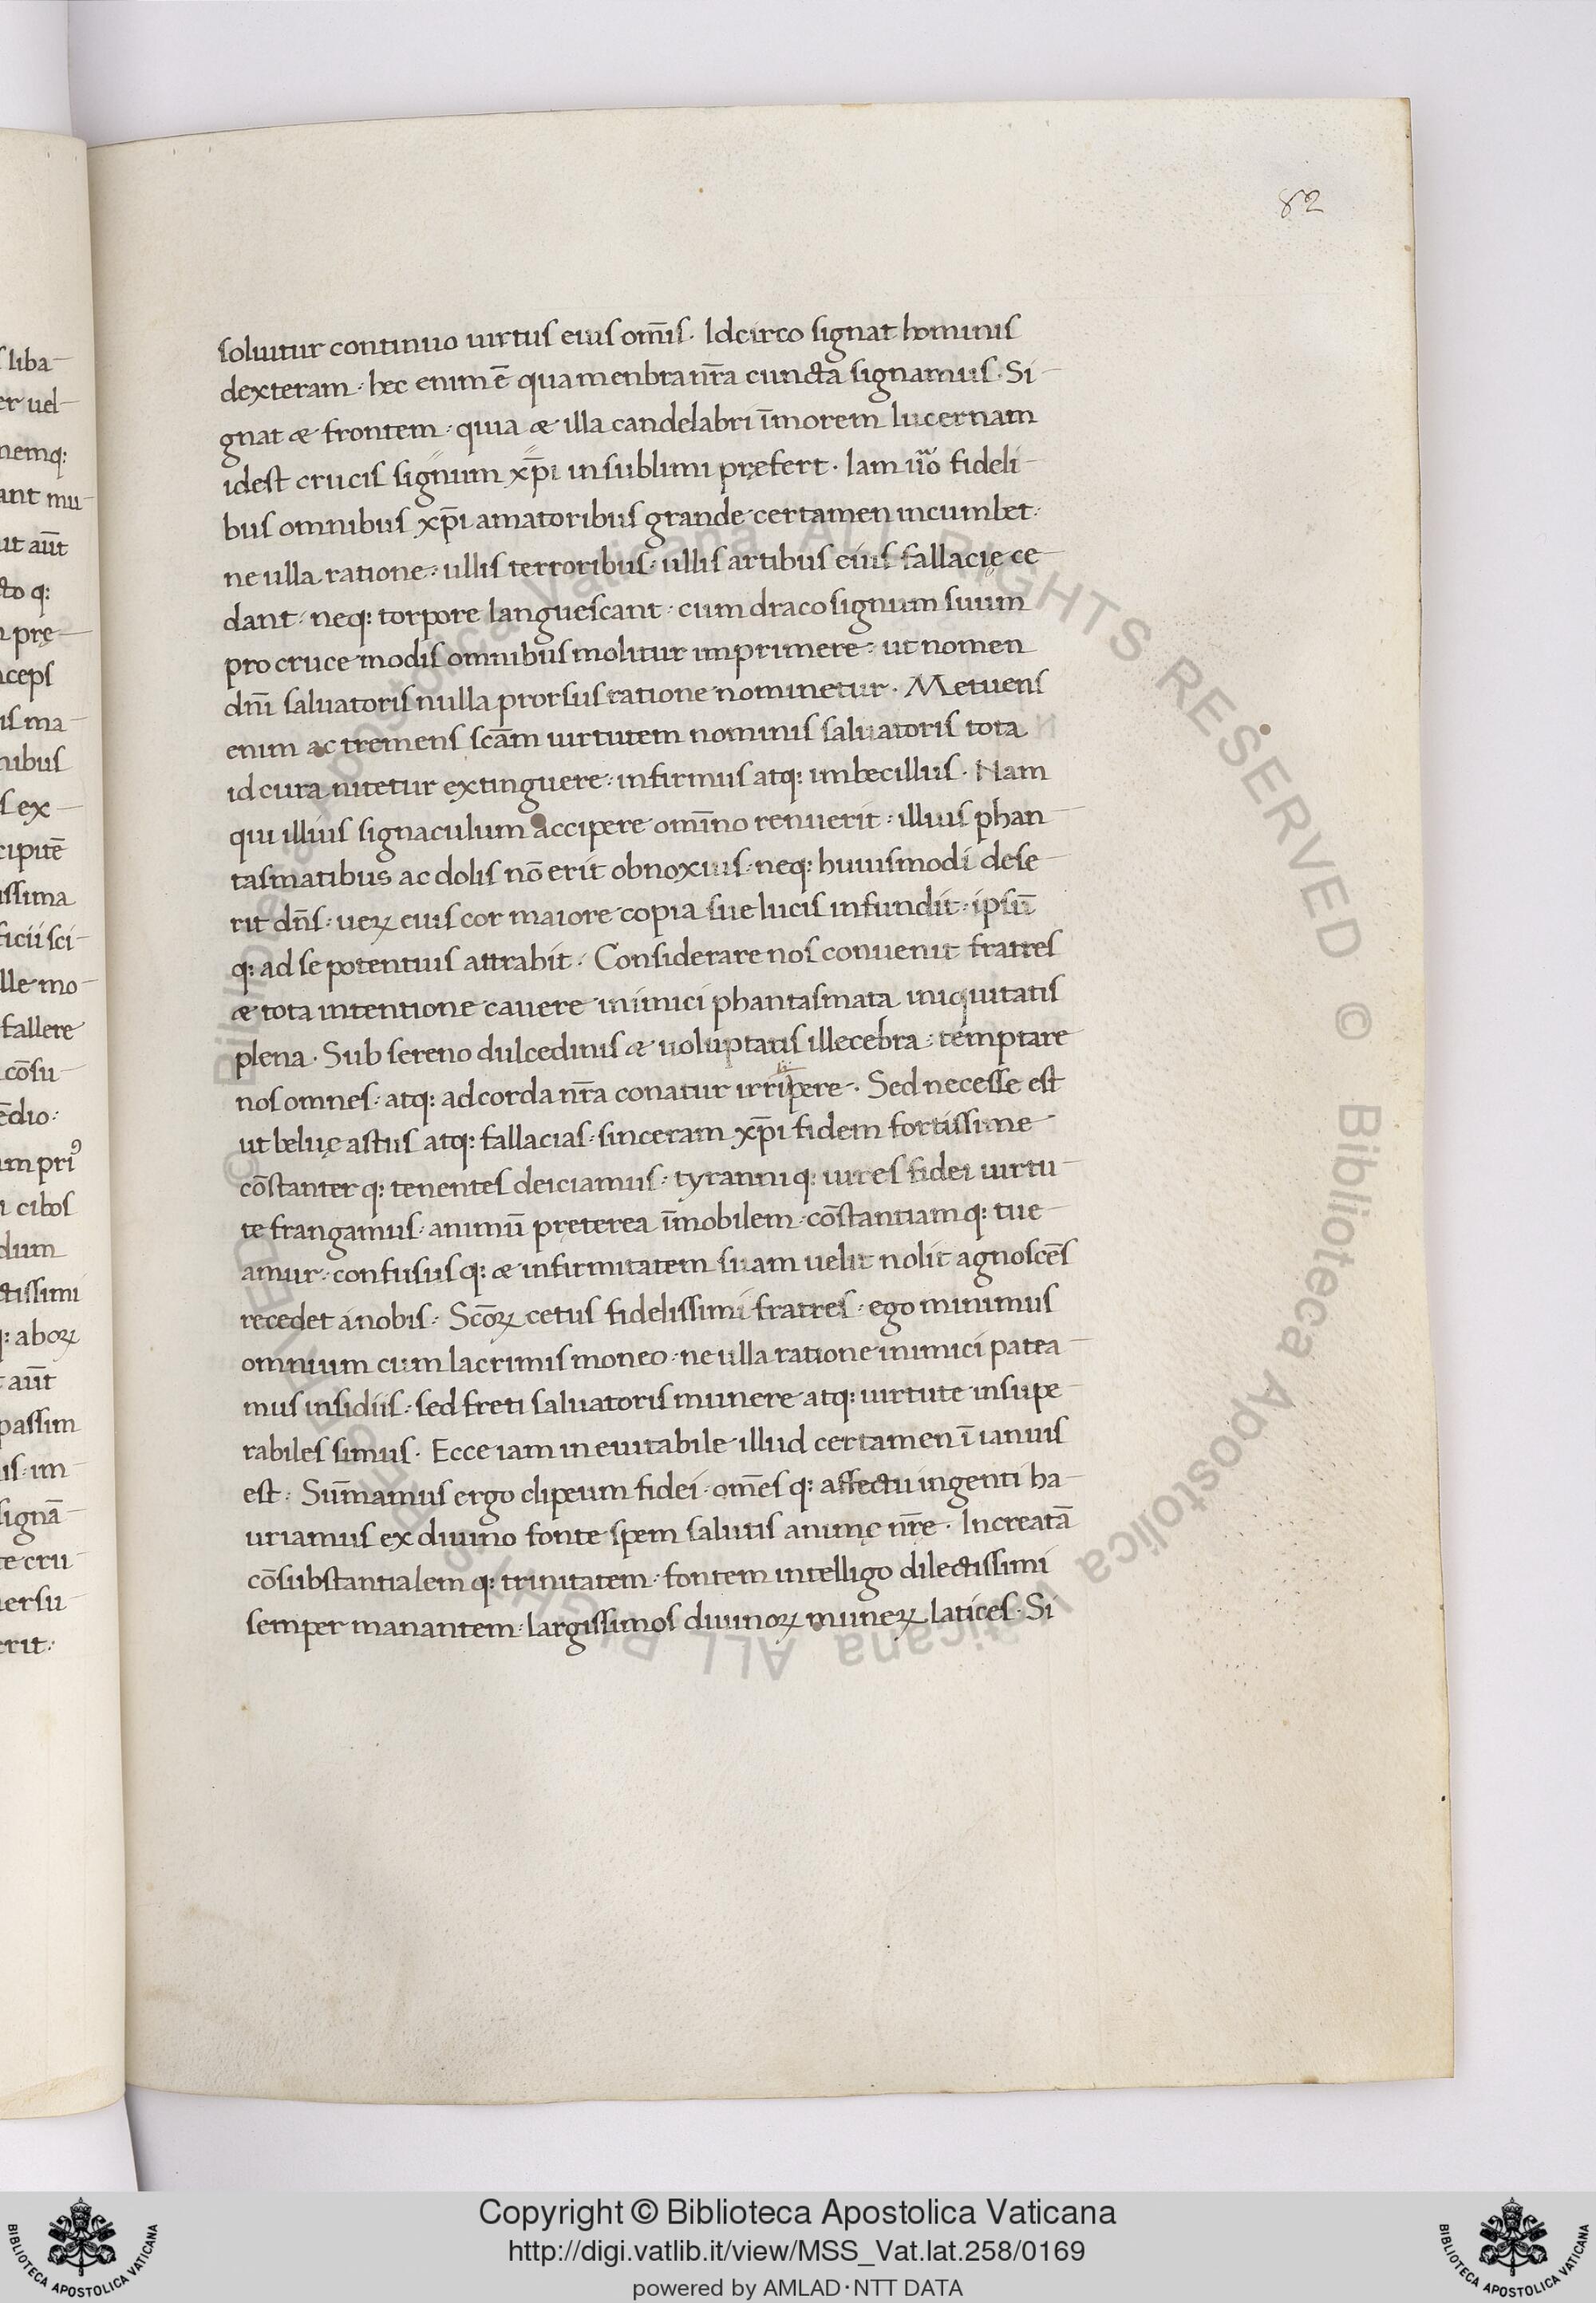 82
soluitur continuo uirtus eius om̄is · Idcirco signat hominis
dexteram · hec enim ē qua menbra nr̄a cuncta signamus · Si
gnat æ frontem · quia æ illa candelabri īmorem lucernam
idest crucis signum xp̄i in sublimi pręfert · Iam u̅o fideli
bus omnibus xp̄i amatoribus grande certamen incumbet ·
ne ulla ratione · ullis terroribus · ullis artibus eius fallacię ce
dant · neq: torpore languescant · cum draco signum suum
pro cruce modis omnibus molitur imprimere · ut nomen
dn̄i saluatoris nulla prorsus ratione nominetur · Metuens
enim ac tremens scām uirtutem nominis saluatoris tota
id cura nitetur extinguere · infirmus atq: imbecillus · Nam
qui illius signaculum accipere om̄ino renuerit · illius phan
tasmatibus ac dolis nō erit obnoxius · neq: huiusmodi dese
rit dn̄s · ueꝝ eius cor maiore copia sue lucis infundit · ipsū
q: ad se potentius attrahit · Considerare nos conuenit fratres
æ tota intentione cauere inimici phantasmata iniquitatis
plena · Sub sereno dulcedinis æ uoluptatis illecebra · temptare
nos omnes · atq: ad corda nr̄a conatur irripere · Sed necesse est
ut beluę astus atq: fallacias · sinceram xp̄i fidem fortissime
cōstanter q: tenentes deiciamus · tyranni q: uires fidei uirtu
te frangamus · animū pręterea īmobilem · cōstantiam q: tue
amur · confusus q: æ infirmitatem suam uelit nolit agnoscēs
recedet a nobis · Scōꝝ cetus fidelissimi fratres · ego minimus
omnium cum lacrimis moneo · ne ulla ratione inimici patea
mus insidiis · sed freti saluatoris munere atq: uirtute insupe
rabiles simus · Ecce iam in euitabile illud certamen ī ianuis
est · Sum̄amus ergo clipeum fidei · om̄es q: affectu ingenti ha
uriamus ex diuino fonte spem salutis animę nr̄e · Increatā
cōsubstantialem q: trinitatem · fontem intelligo dilectissimi
semper manantem · largissimos diuinoꝝ muneꝝ latices · Si
s liba
er uel
nemq:
ant mu
ut aūt
cto q:
n prę
nceps
is ma
nibus
s ex
cipitē
issima
ficii sci
lle mo
fallere
cōsu
ēdio ·
im priꝰ
i cibos
dum
ctissimi
q: ab oꝝ
t aūt
passim
is · im
signā
te cru
uersu
erit ·
© Biblioteca Apostolica Vaticana ALL RIGHTS RESERVED © Biblioteca Apostolica Vaticana ALL RIGHTS RESERVED
Copyright © Biblioteca Apostolica Vaticana
http://digi.vatlib.it/view/MSS_Vat.lat.258/0169
powered by AMLAD·NTT DATA
BIBLIOTECA APOSTOLICA VATICANA
BIBLIOTECA APOSTOLICA VATICANA